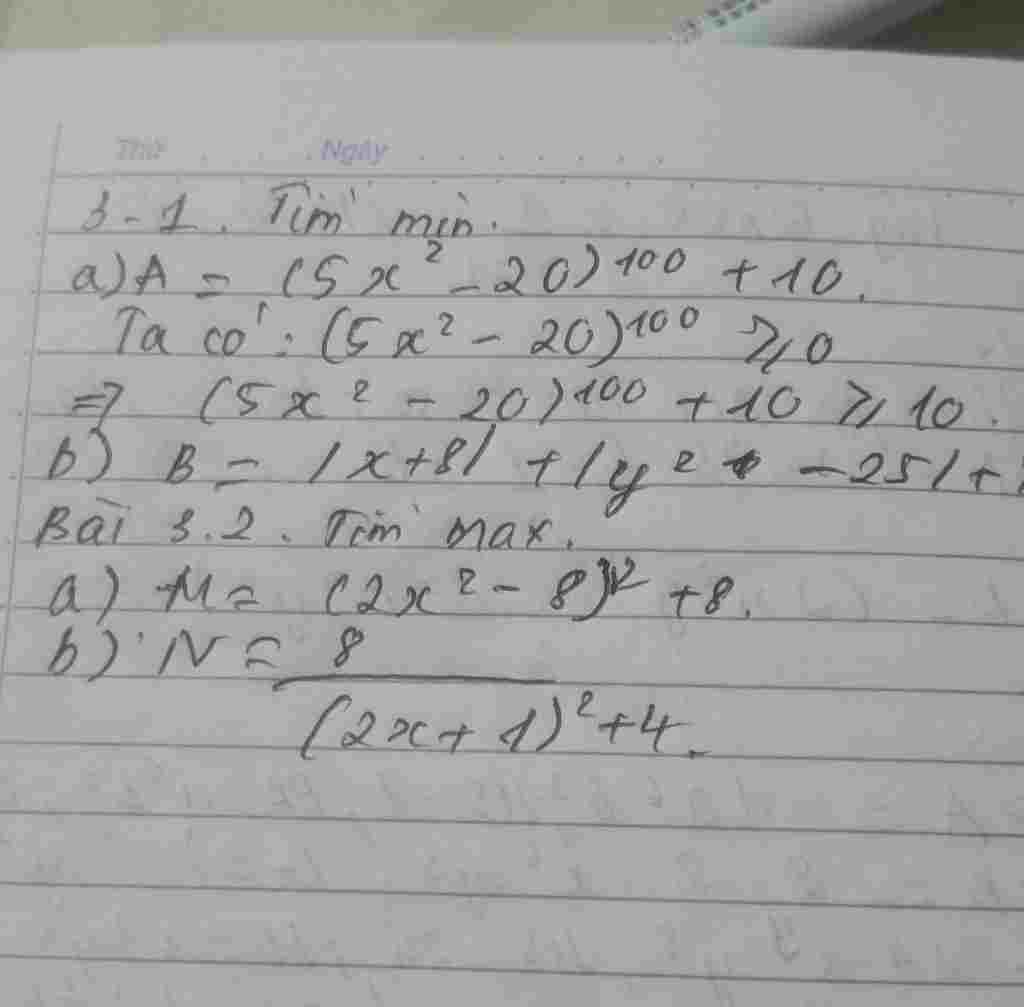 Thứ Ngày
3-1. Tìm min.
a) A = (5x² - 20)¹⁰⁰ + 10.
Ta có: (5x² - 20)¹⁰⁰ ⩾ 0
=> (5x² - 20)¹⁰⁰ + 10 ⩾ 10.
b) B = |x+8| + |y² - 25| +
Bài 3.2. Tìm max.
a) M = (2x² - 8) + 8.
b) N = 8
(2x + 1)² + 4.